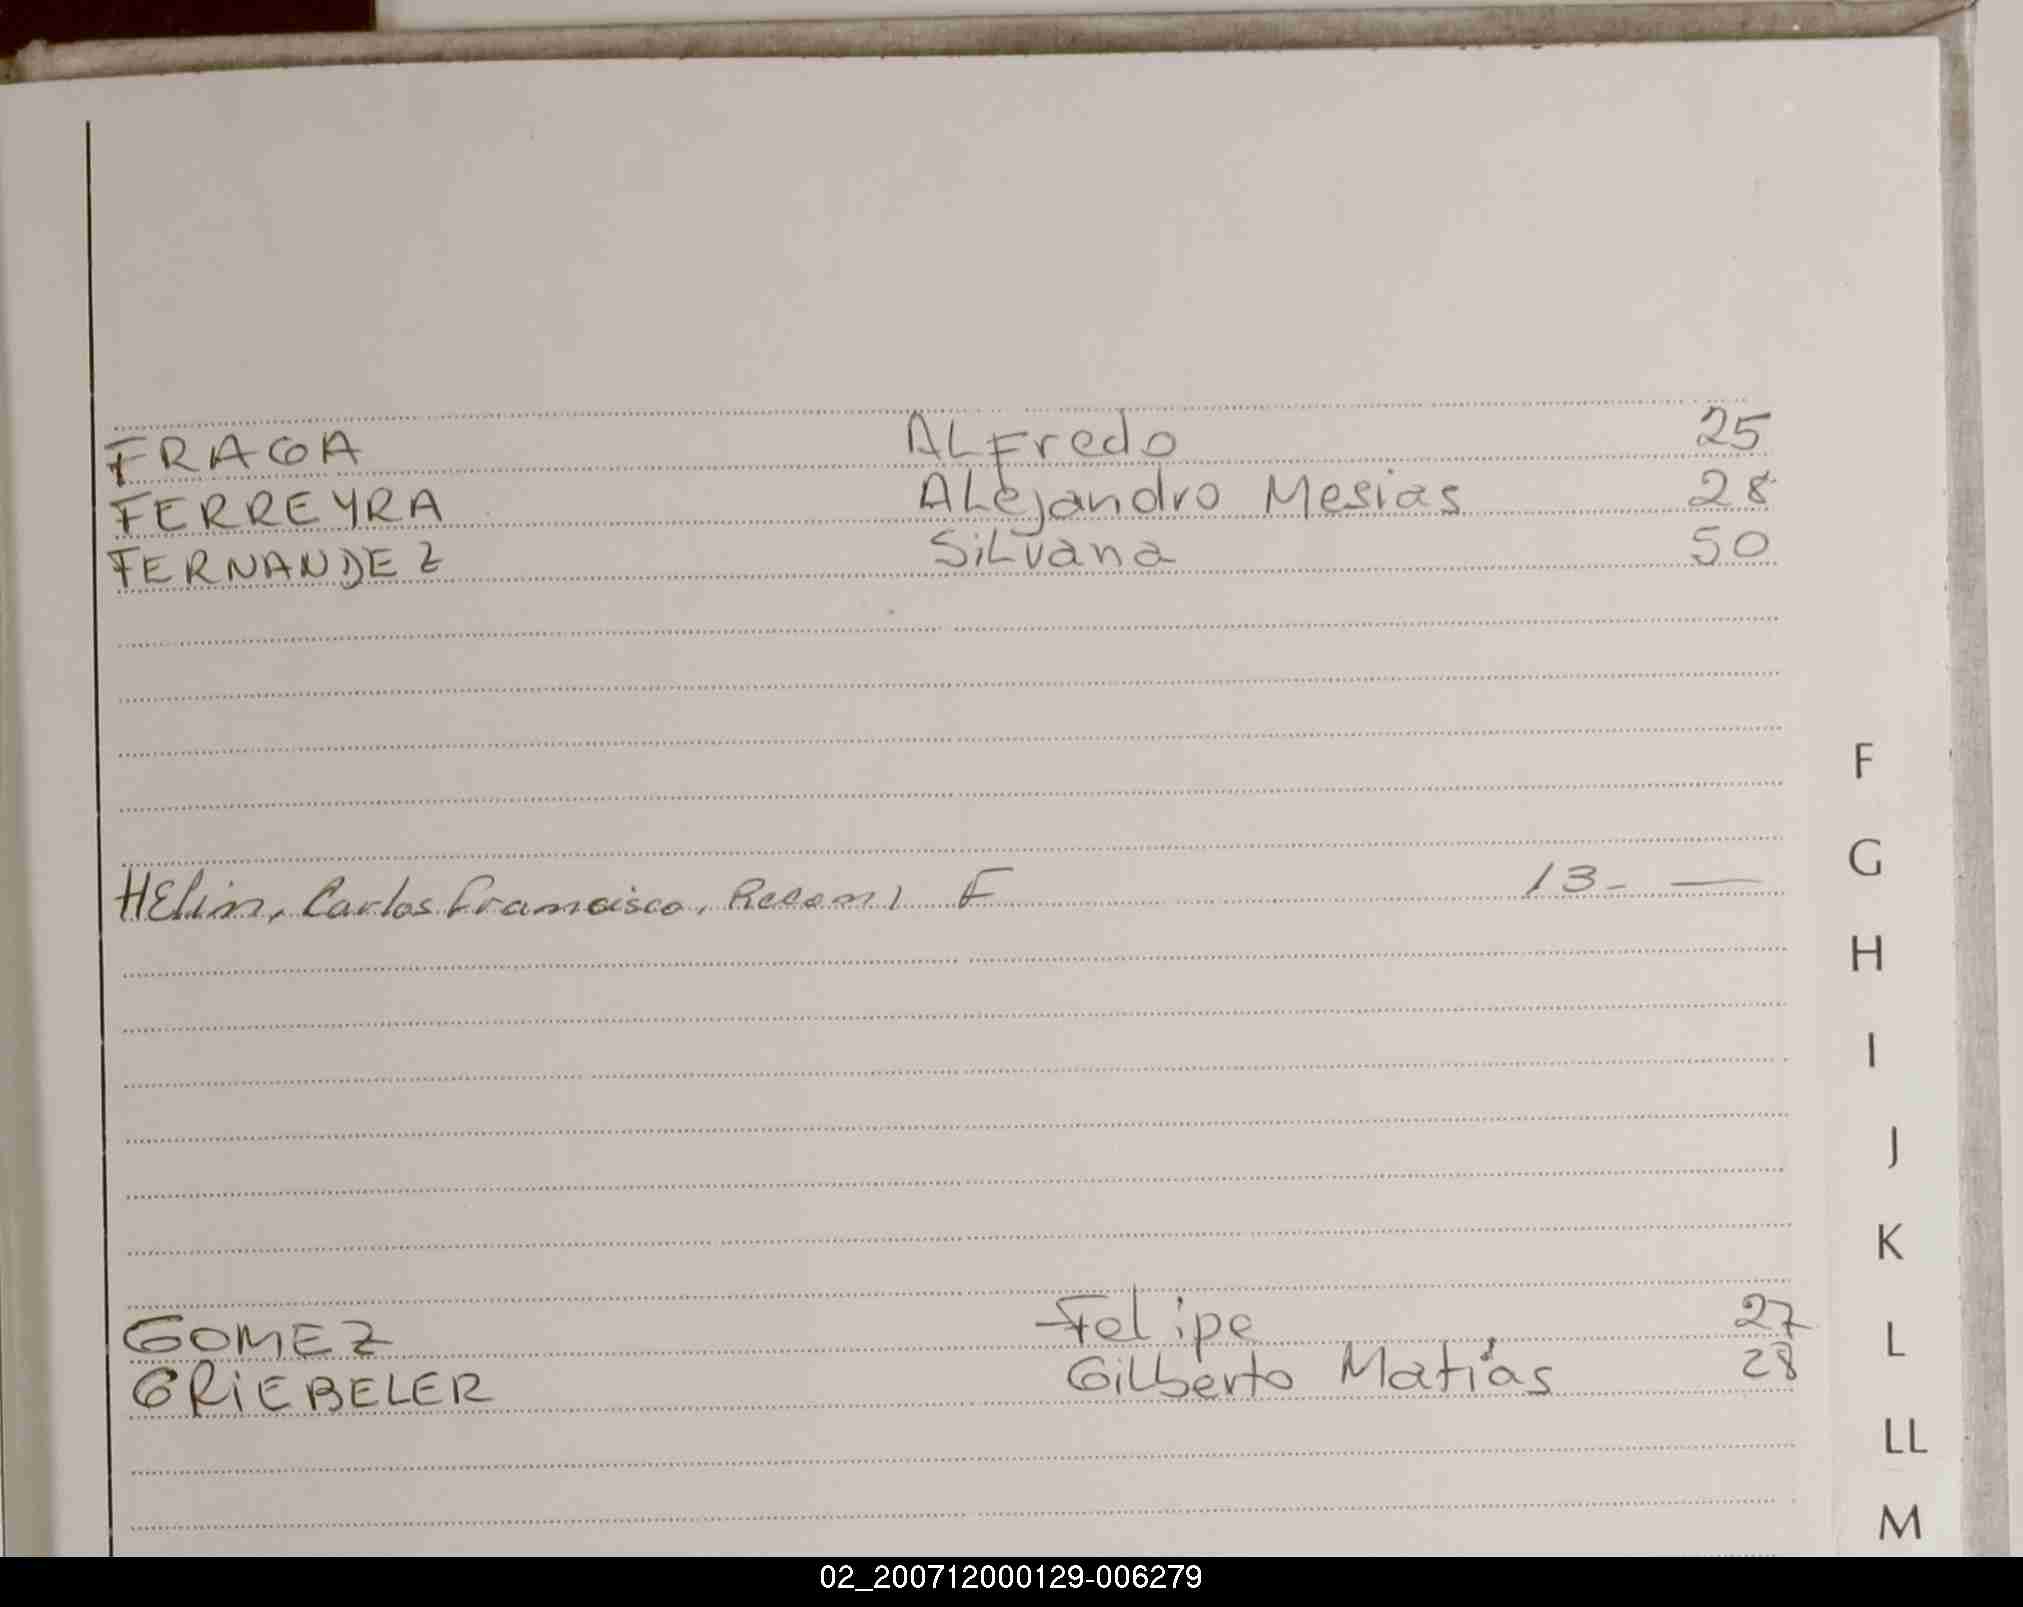 FRAGA ALFredo 25
FERREYRA ALejandro Mesias 28
FERNANDEZ SiLvana 50
F
G
HElin, Carlos Francisco, F 13- —
H
I
J
K
GOMEZ Felipe 27
L
GRiEBELER GiLberto Matías 28
LL
M
02_200712000129-006279